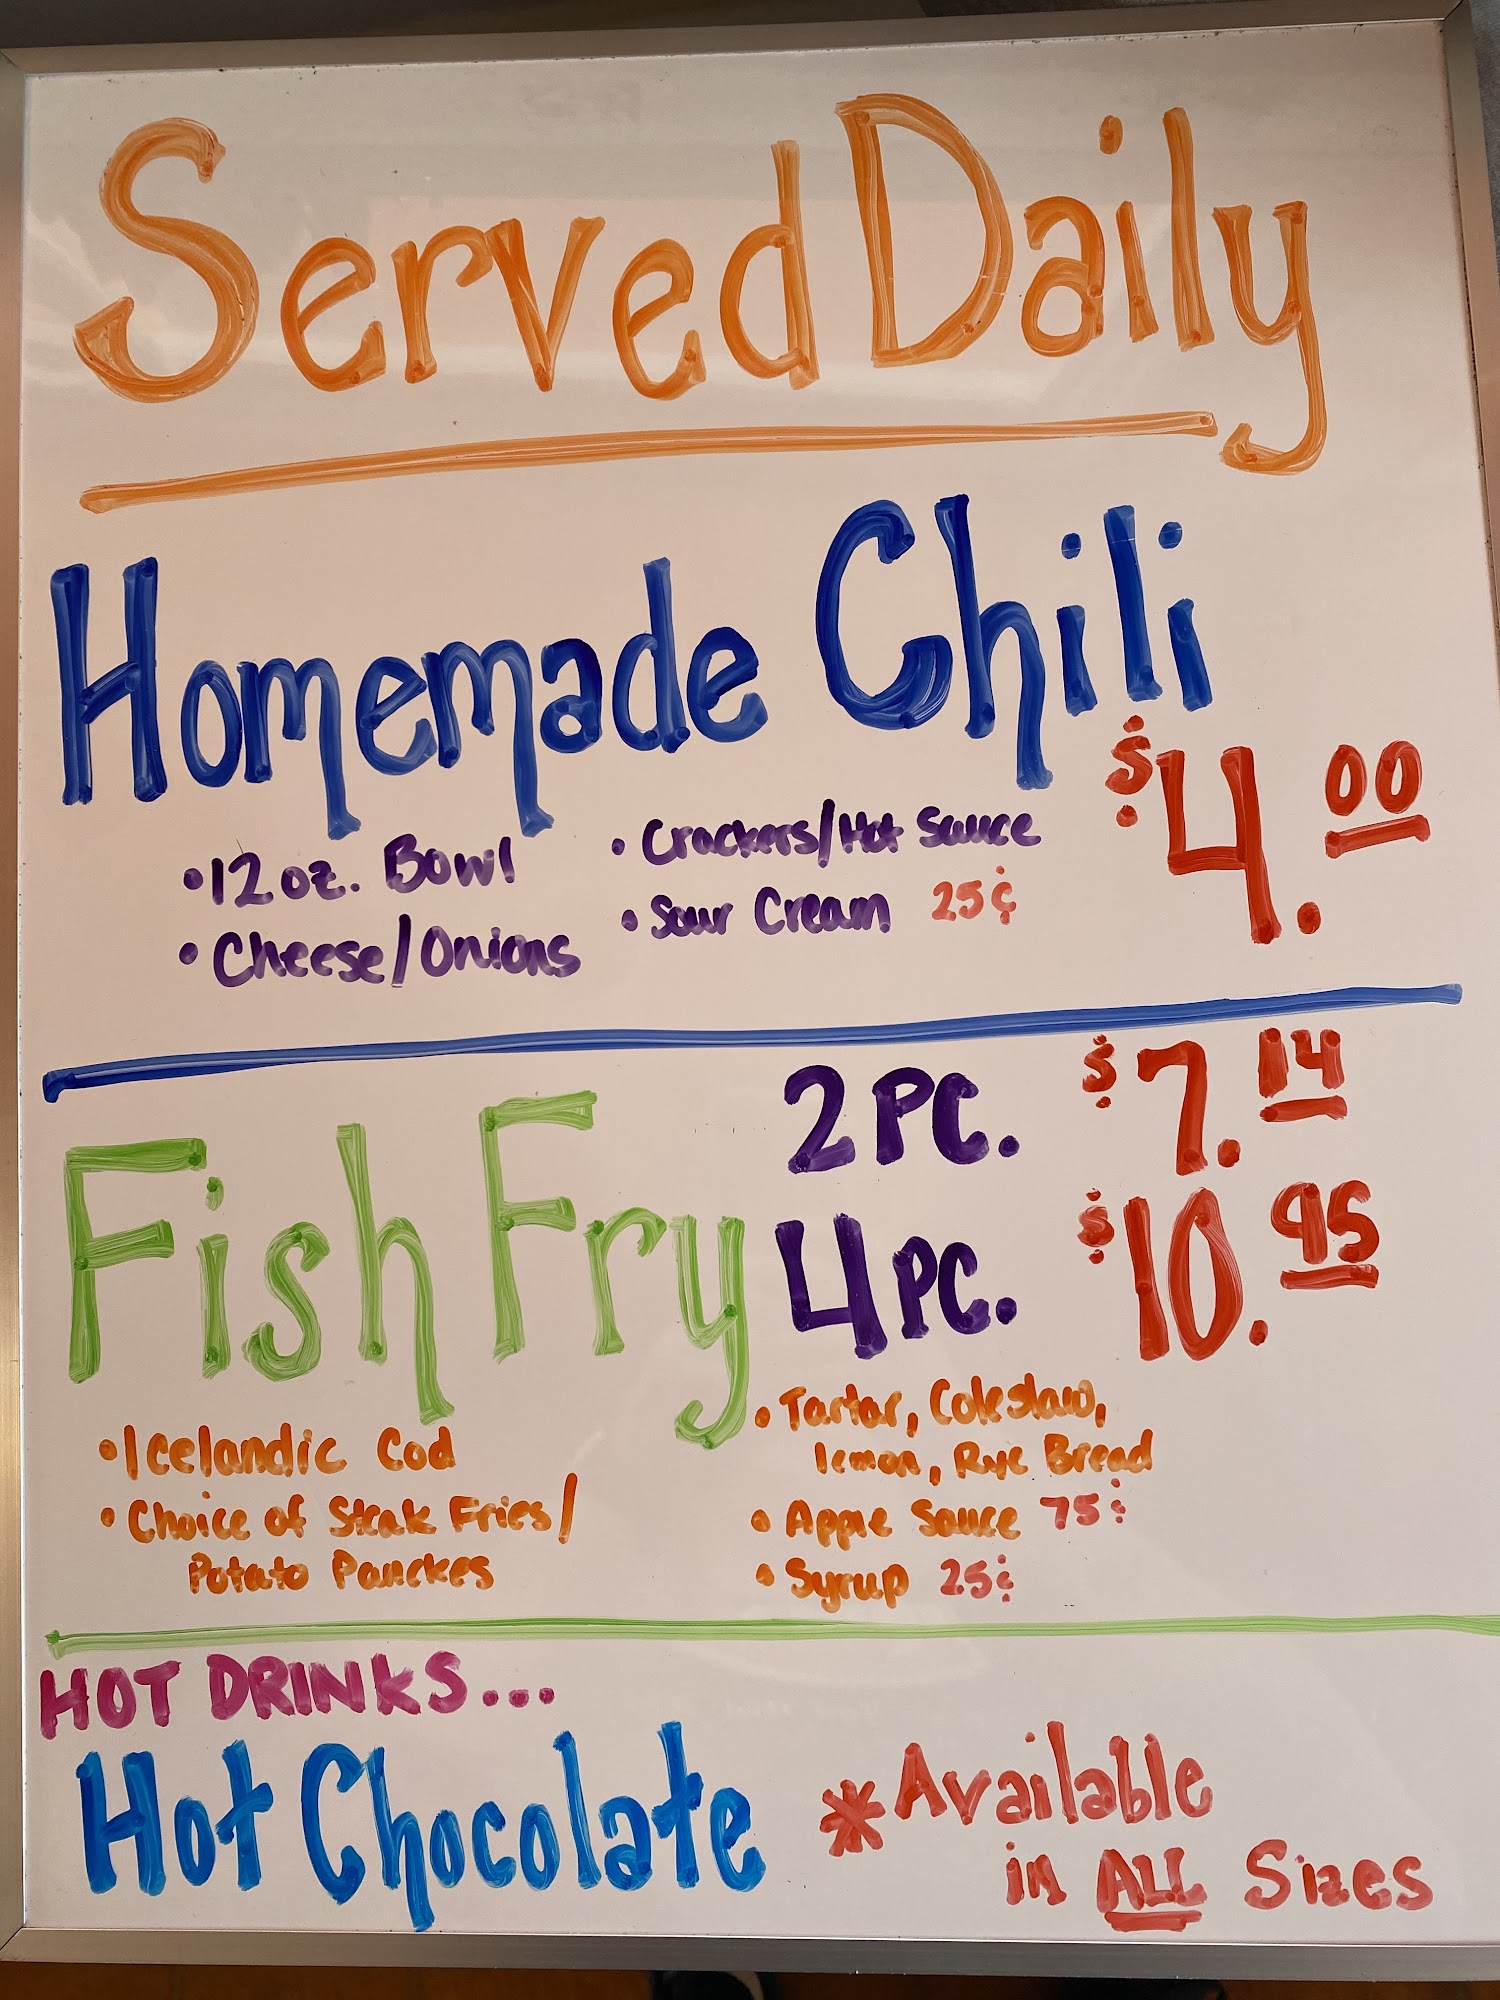 Served Daily
Homemade Chili
$4.00
•12 oz. Bowl
• Cheese/Onions
• Crackers/Hot Sauce
• Sour Cream 25¢
Fish Fry
2 PC. $7.14
4 PC. $10.95
•Icelandic Cod
• Choice of Steak Fries/
Potato Panckes
• Tartar, Coleslaw,
lemon, Rye Bread
• Apple Sauce 75¢
• Syrup 25¢
HOT DRINKS...
Hot Chocolate
*Available
in ALL Sizes